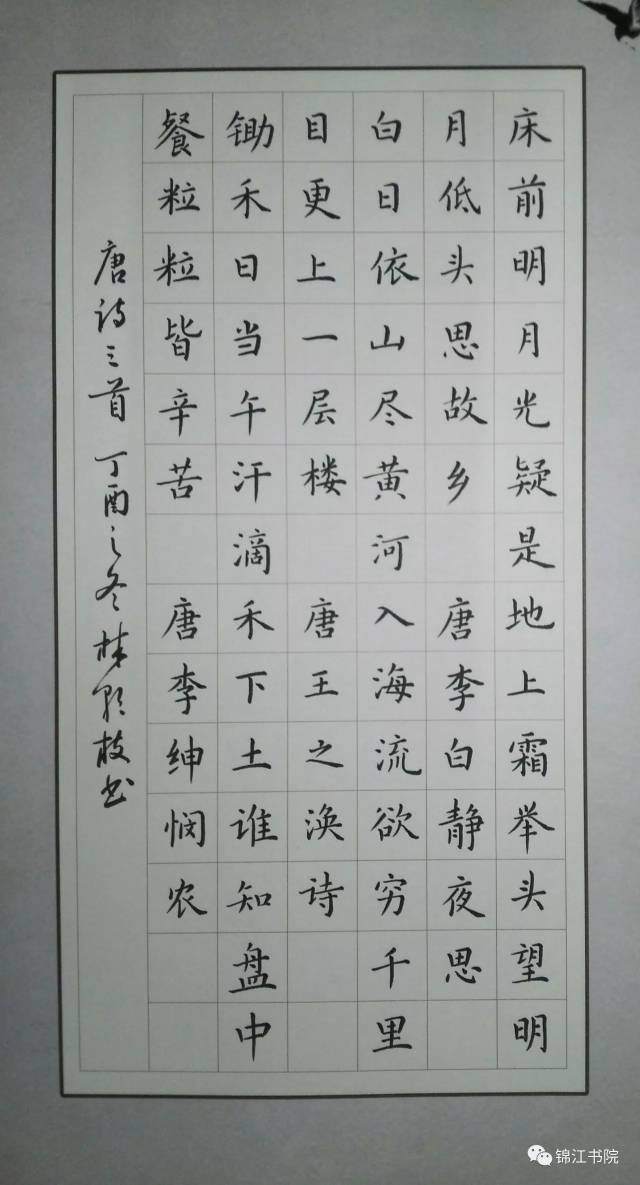 床前明月光疑是地上霜举头望明
月低头思故乡 唐李白静夜思
白日依山尽黄河入海流欲穷千里
目更上一层楼 唐王之涣诗
锄禾日当午汗滴禾下土谁知盘中
餐粒粒皆辛苦 唐李绅悯农
唐诗三首 丁酉之冬 枝书
锦江书院